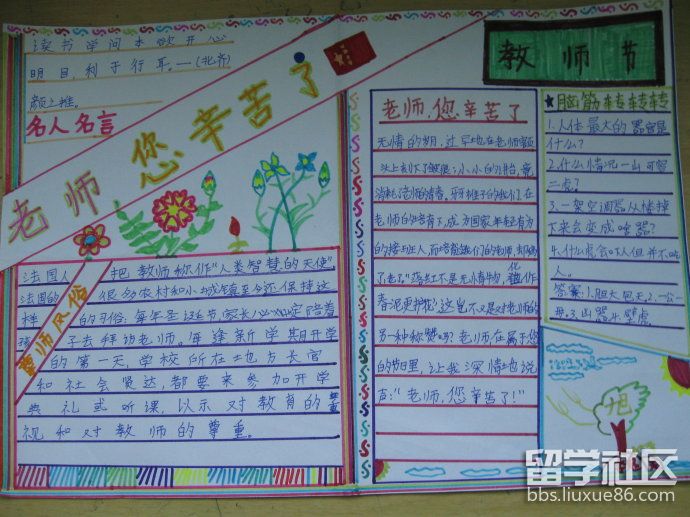 读书学问本欲开心
明目,利于行耳。—(北齐)
颜之推。
名人名言
老师 您辛苦了
法国人把教师称作"人类智慧的天使"
法国的很多农村和小城镇至今还保持这
样的习俗:每年圣诞节家长必定陪着
孩子去拜访老师。每逢新学期开学
的第一天,学校所在地方长官
和社会贤达,都要来参加开学
典礼或听课,以示对教育的重
视和对教师的尊重。
尊师风俗
教师节
老师,您辛苦了
无情的
过早地在老师额
头上刻下了皱
小小的
消耗
老师的培育下,成为国家年轻有为
的接班人,而培育
们的老师,却
了"老了"落红不是无情物,化作
春泥更护花!这岂不又是对老师的
另一种称赞吗?老师在属于您
的节日里,让我深情地说
声:"老师,您辛苦了!"
脑筋转转转
1.人体最大的器官是
什么?
2.什么情况一山可容
二虎?
3.一架空调器从楼掉
下来会变成啥器?
4.什么虎会吓人但并不吃
人。
答案:1.胆大包天2.一公一
母.3.凶器4.壁虎
旭
留学社区
bbs.liuxue86.com